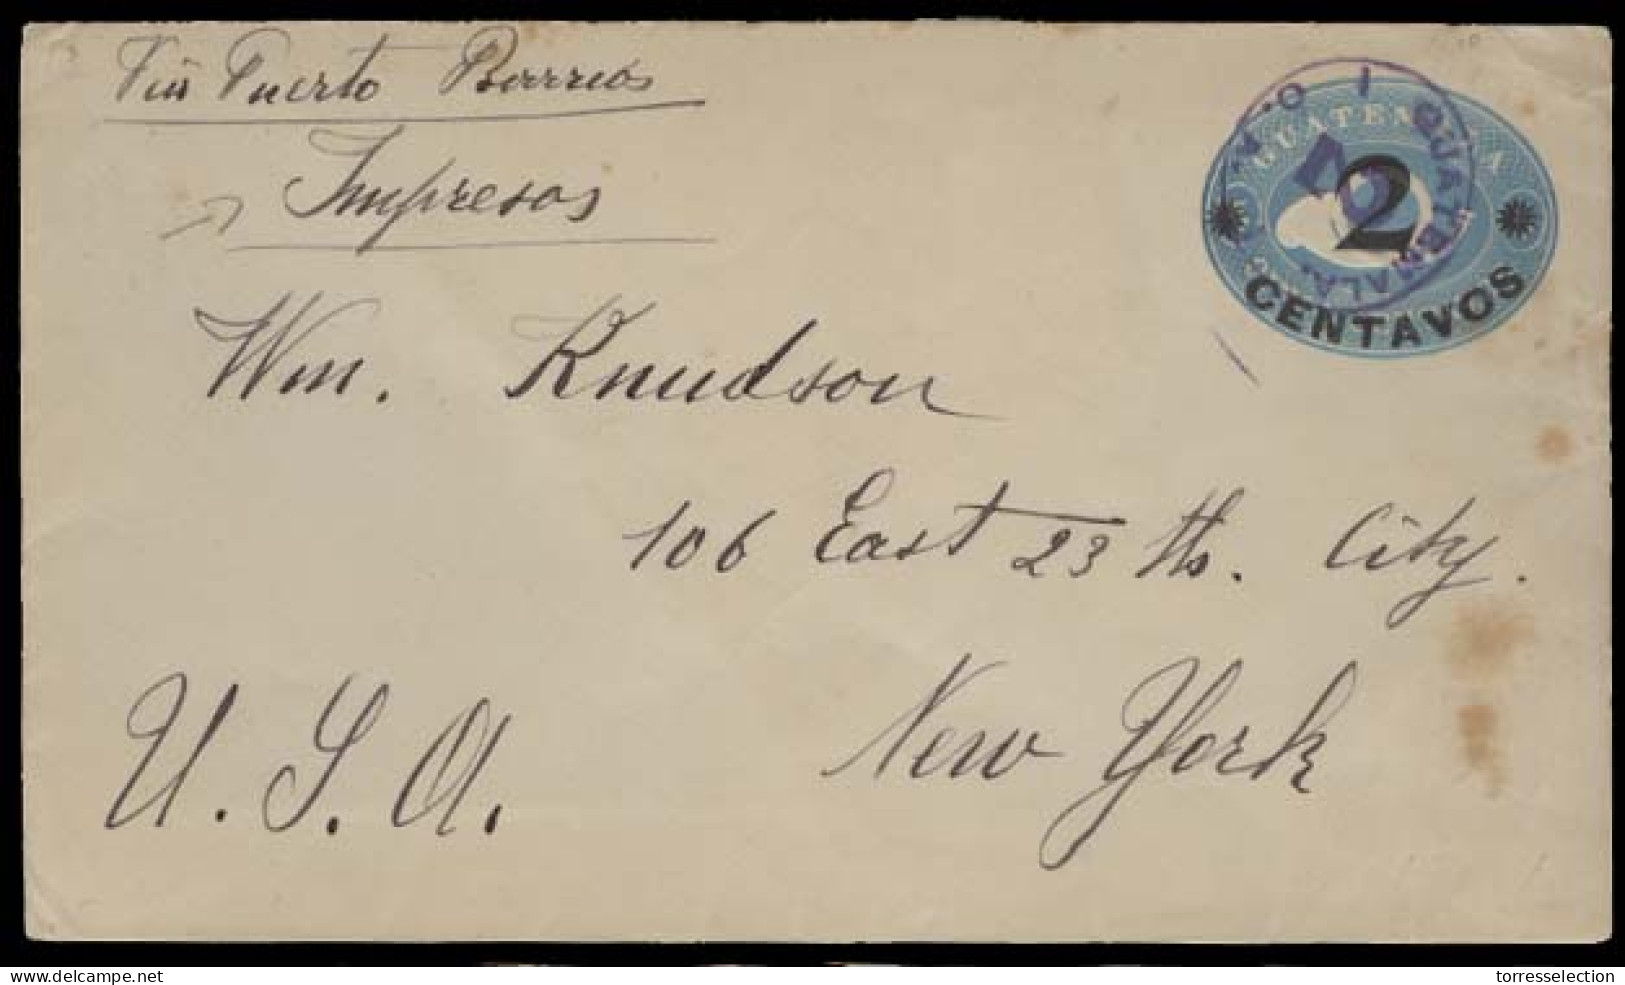 Via Puerto Barrios
Impresos
GUATEMALA
GUATEMALA
2
CENTAVOS
Wm. Knudson
106 East 23 th. City.
New York
U. S. A.
delcampe.net
torresselection